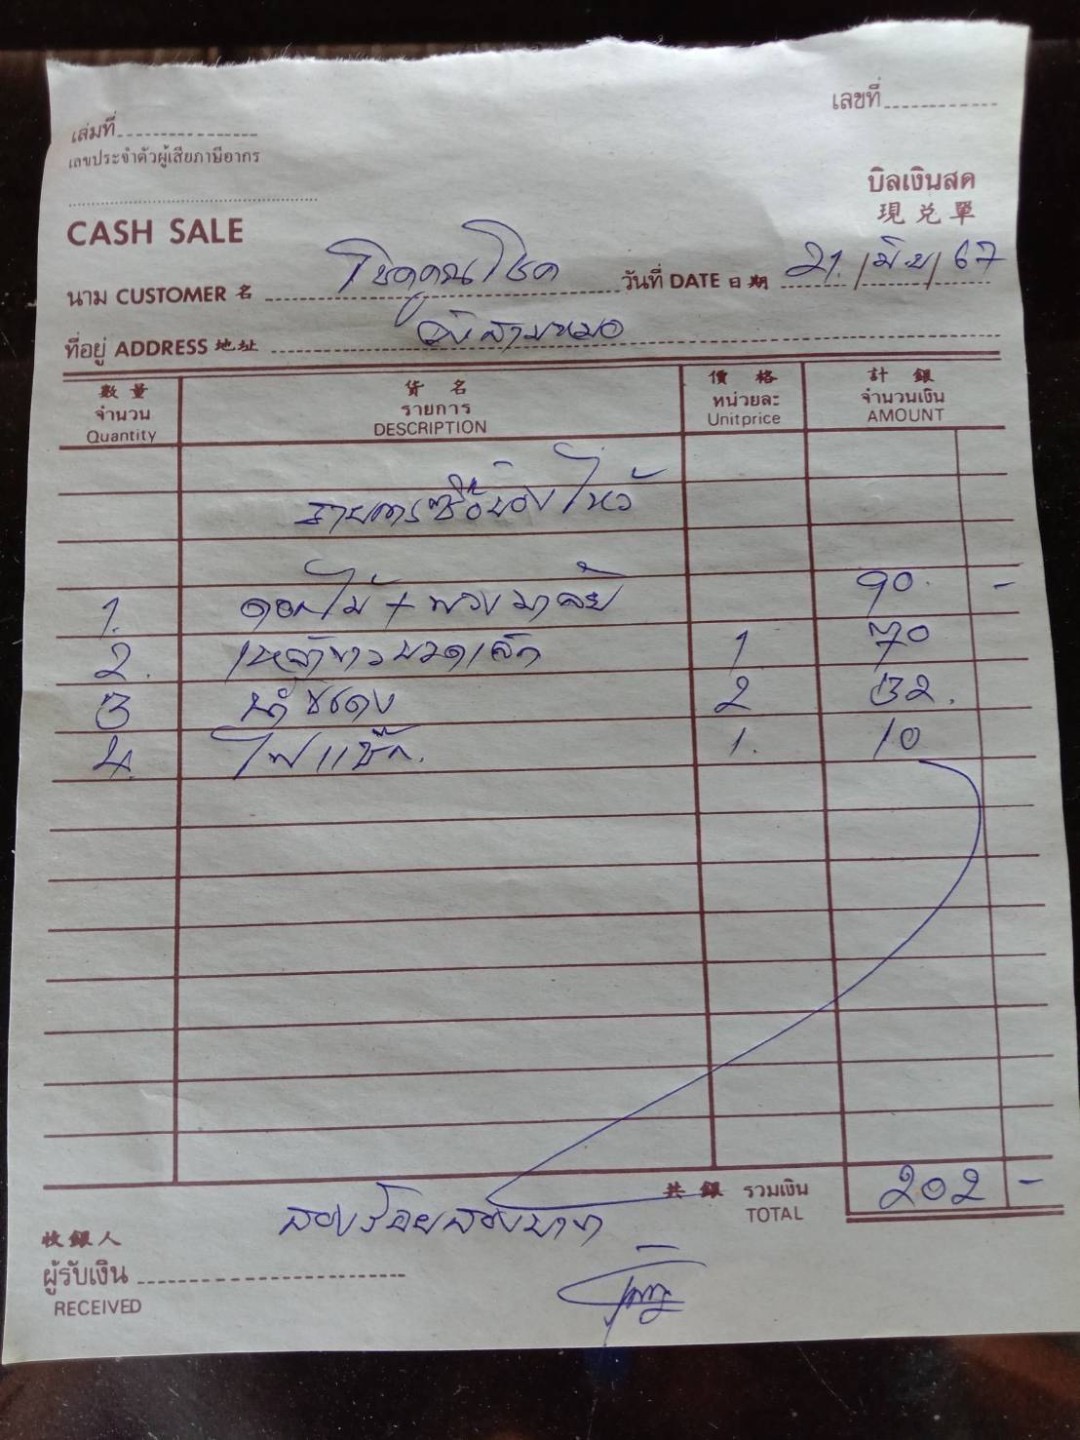 เลขที่
เล่มที่
เลขประจำตัวผู้เสียภาษีอากร
บิลเงินสด
現兌單
CASH SALE
นาม CUSTOMER 名 โชคคูณโชค วันที่ DATE 日期 21 / มิย / 67
ที่อยู่ ADDRESS 地址 วังสามหมอ
數量 貨名 價格 計銀
จำนวน รายการ หน่วยละ จำนวนเงิน
Quantity DESCRIPTION Unitprice AMOUNT
รายการซื้อของไหว้
1. ดอกไม้ + พวงมาลัย 90. -
2. เหล้าขาวขวดเล็ก 1 70
3 น้ำแดง 2 32.
4. ไฟแช๊ก. 1. 10
共銀 รวมเงิน 202 -
TOTAL
สองร้อยสองบาท
收銀人
ผู้รับเงิน
RECEIVED